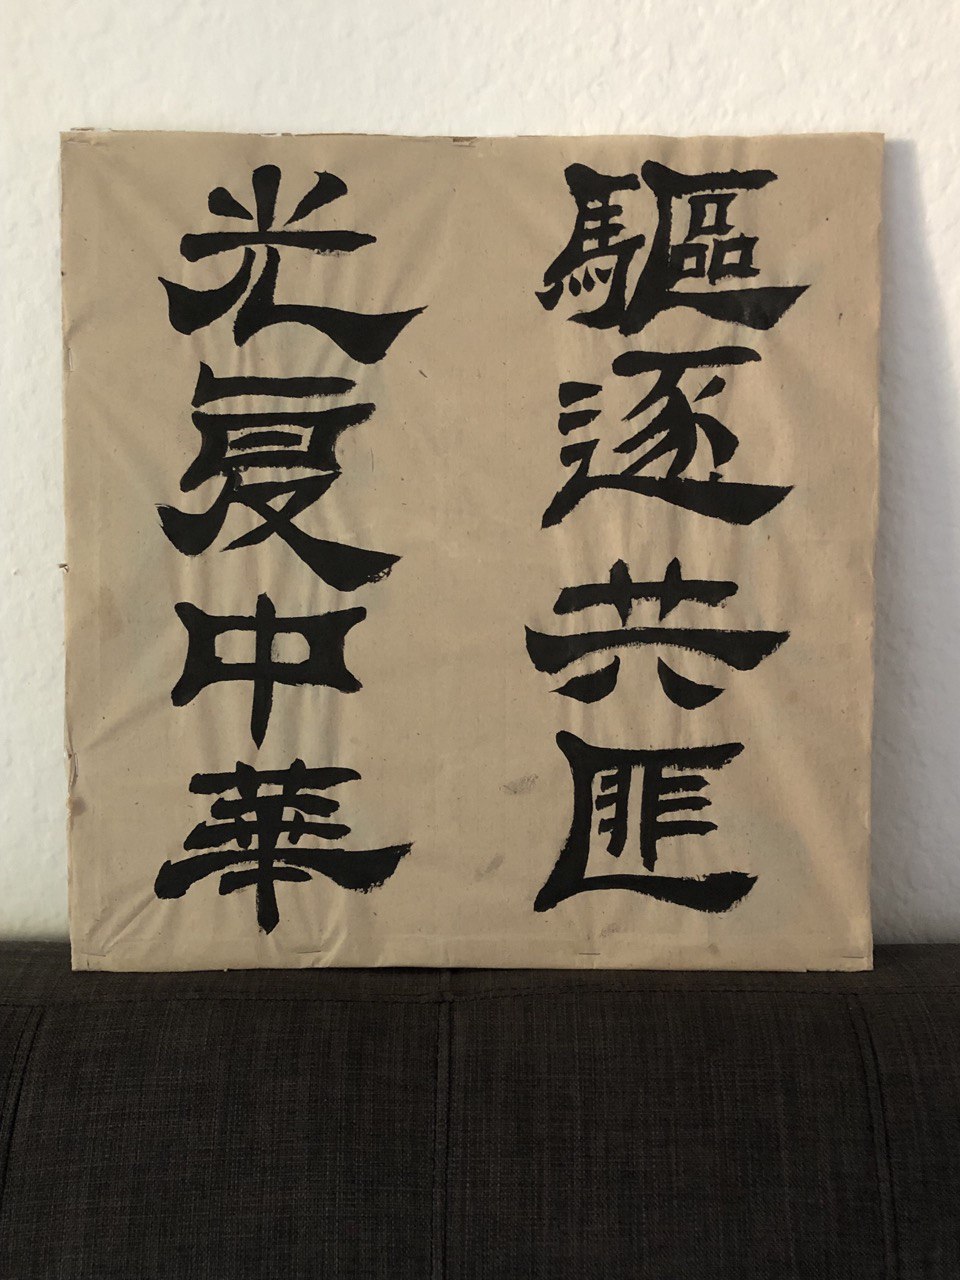 驅逐共匪
光复中華